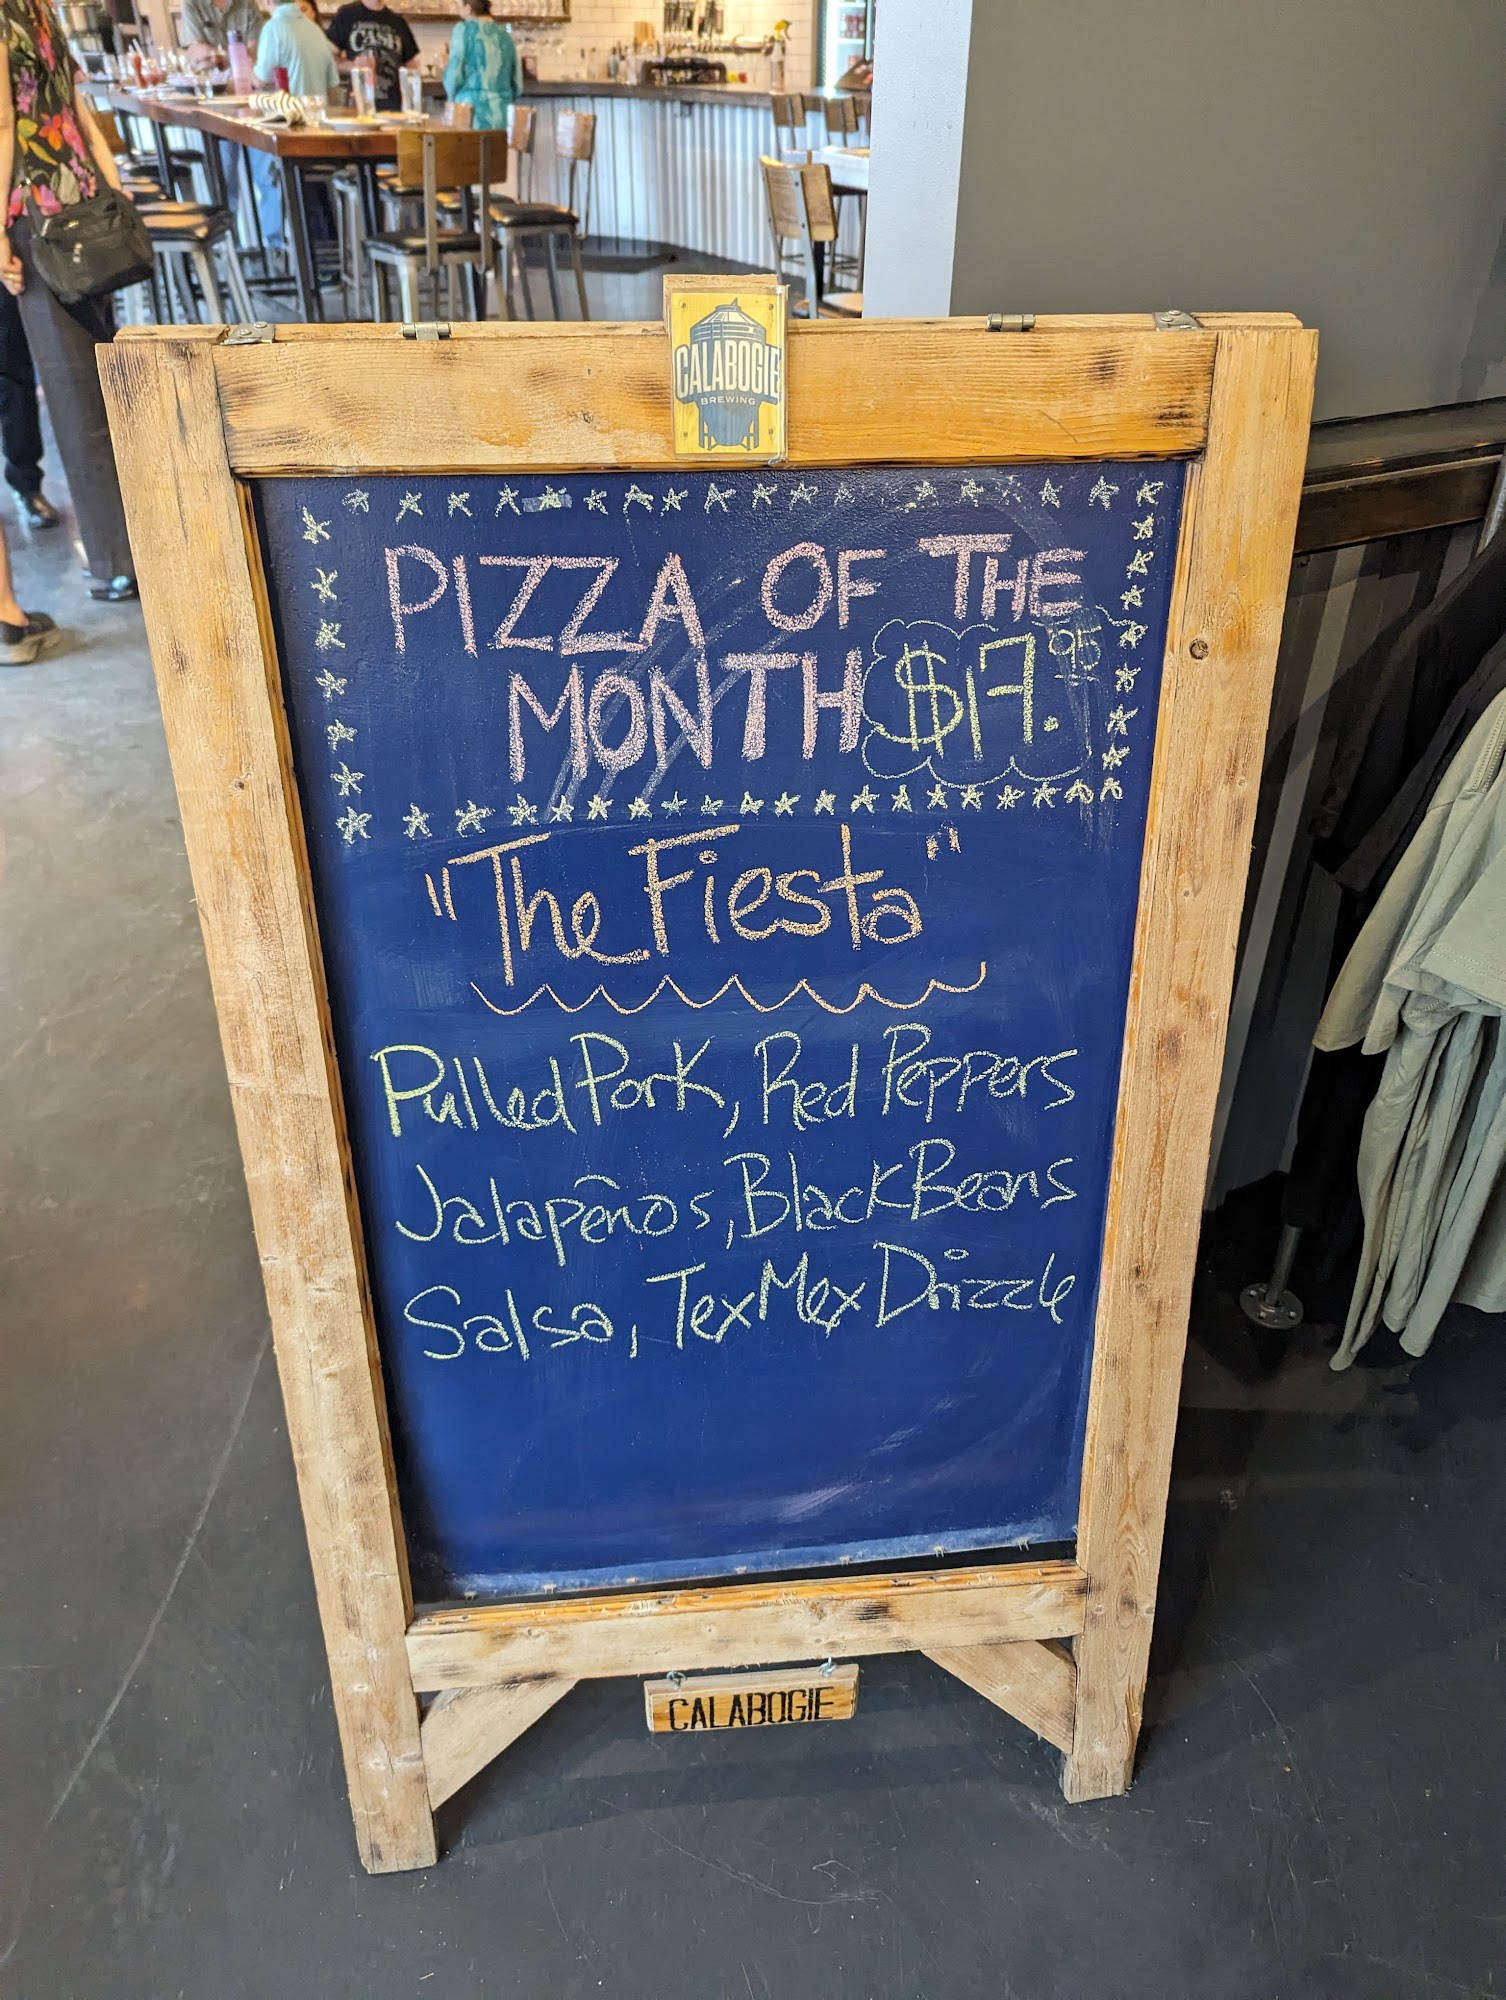 CASH
CALABOGIE
BREWING
PIZZA OF THE
MONTH $17.95
"The Fiesta"
Pulled Pork, Red Peppers
Jalapeños, Black Beans
Salsa, Tex Mex Drizzle
CALABOGIE